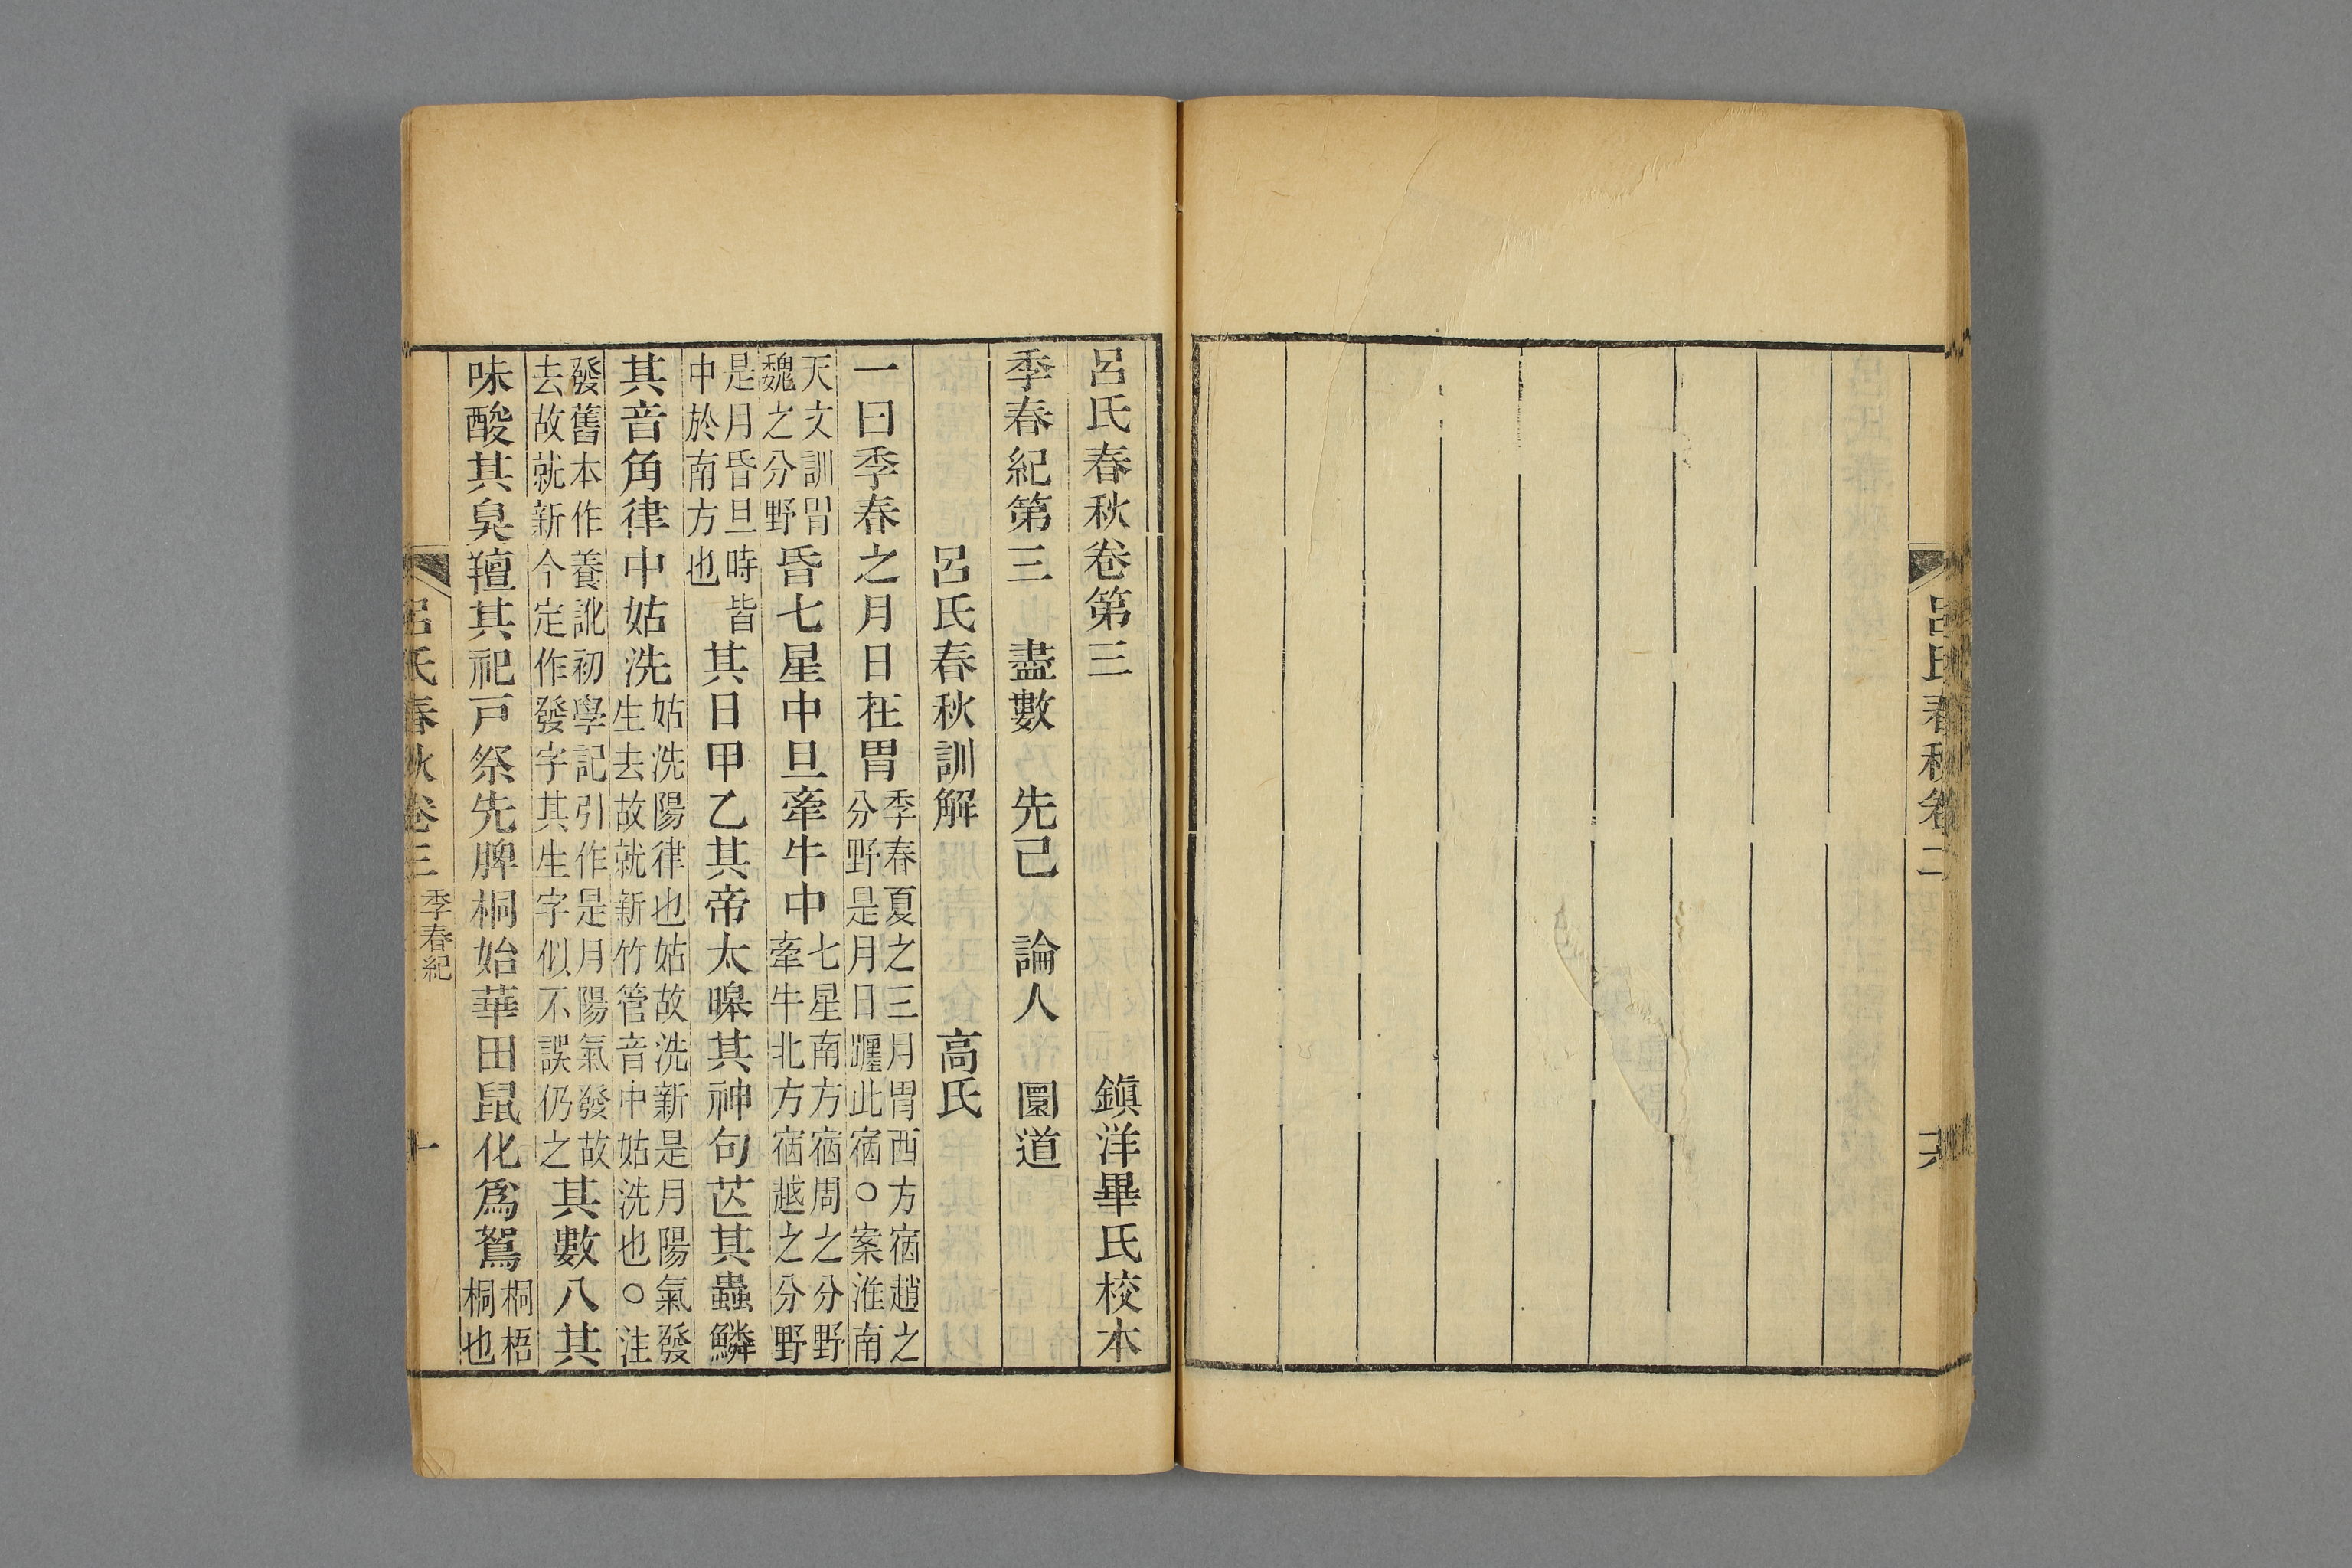 呂氏春秋卷二
呂氏春秋卷第三　鎮洋畢氏校本
季春紀第三　盡數　先己　論人　圜道
呂氏春秋訓解　高氏
一曰季春之月日在胃季春夏之三月胃西方宿趙之分野是月日躔此宿○案淮南
天文訓胃魏之分野昏七星中旦牽牛中七星南方宿周之分野牽牛北方宿越之分野
是月昏旦時皆中於南方也其日甲乙其帝太皞其神句芒其蟲鱗
其音角律中姑洗姑洗陽律也姑故洗新是月陽氣發生去故就新竹管音中姑洗也○注
發舊本作養訛初學記引作是月陽氣發故去故就新今定作發字其生字似不誤仍之其數八其
味酸其臭羶其祀戸祭先脾桐始華田鼠化爲鴽桐梧桐也
呂氏春秋卷三　季春紀